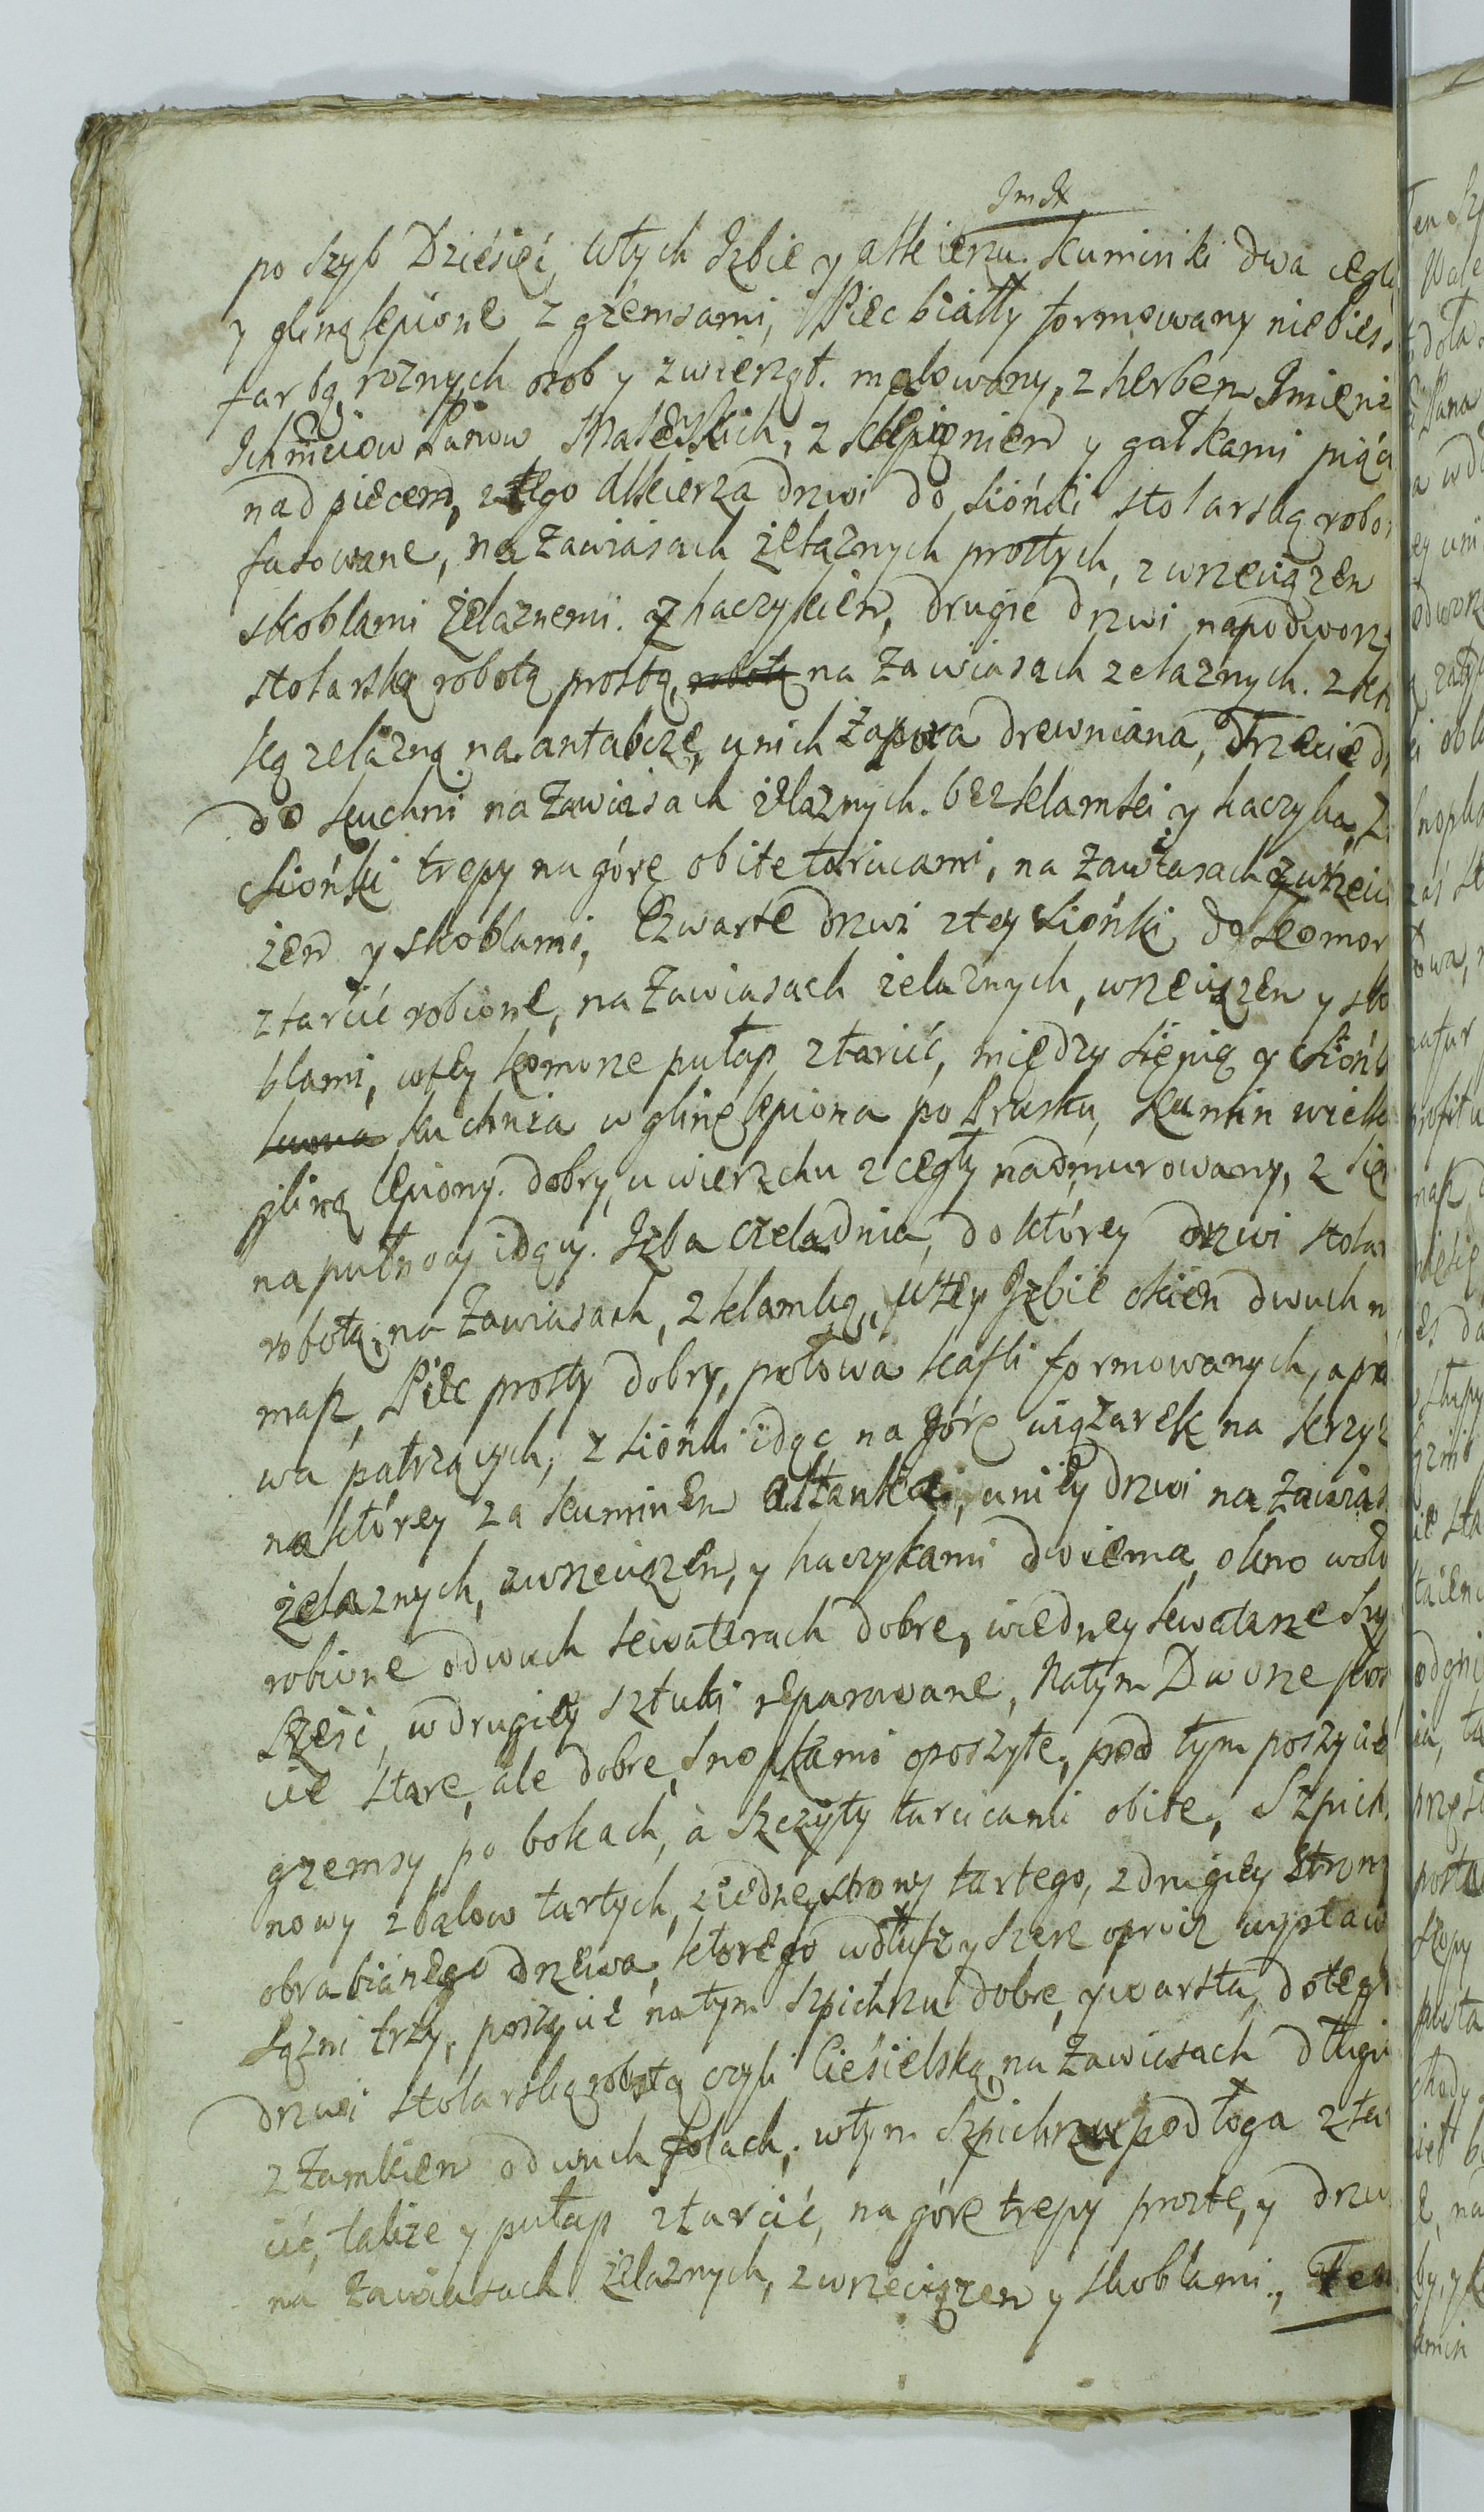 po szyb Dziesięć, wtych Izbie y alkierzu kuminki dwa cegl
y gliną lepione z gzemsami, Piec biały formowany niebies
farbą roznych osob y zwierząt malowany, z herbem Imieni
Ichmciow Panow z sklepieniem y gałkami pięc
nad piecem, z tego alkierza drzwi do sióńki stolarską robo
fasowane, na zawiasach żelaznych prostych, z wrzeciązem
skoblami żelaznemi. y z haczykiem, drugie drzwi napodworz
stolarską robotą prostą, robotą na zawiasach zelaznych. z kla
ką zelazną na antabcze, unich zapora drewniana, Trzecie d
do kuchni na zawiasach żelaznych. bez klamki y haczyka, Z
Sióńki trepy na górę obite tarcicami, na zawiasach z wrzeci
żem y skoblami, Czwarte drzwi ztey sióńki do komor
ztarcic robione, na zawiasach żelaznych, wrzeciązem y sko
blami, wtey komorze pułap ztarcic, między sięnią y sióńk
kuchnia w glinę lepiona po Prusku, kumin wielk
gliną lepiony. dobry, uwierzchu z cegły nadmurowany, z się
napułnocy idący. Izba czeladnia, do którey drzwi stolar
robotą, na zawiasach, z klamką, wtey Izbie okien dwuch n
masz, Piec prosty dobry, połowa kafli formowanych, a poło
wa patrzących, z sióńki idąc na górę wiązarek na krzyż
naktórey za kuminem altanka, uniey drzwi na zawias
żelaznych, zwrzeciązem, y haczykami dwiema, okno wołow
robione odwuch kwaterach dobre, wiedney kwaterze szy
sześć, wdrugiey sztuki reparowane, Natym Dworze poszy
cie stare, ale dobre, snopkami oposzyte, pod tym poszycie
gzemsy po bokach, à szczyty tarcicami obite, Szpich
nowy zbalow tartych, ziedney strony tartego, zdrugiey strony
obrabianego drzewa, ktorego wdłusz y szerz oprucz wystaw
sązni trzy, poszycie natym szpichrzu dobre, ywarsta, dotego
drzwi stolarską robotą czyli Cieśielską, na zawiasach długi
z zamkiem odwuch polach, wtym szpichrzu podłoga ztar
cic, także y pułap ztarcic, na górę trepy proste, y drzw
na zawiasach żelaznych, zwrzeciązem y skoblami, Ten